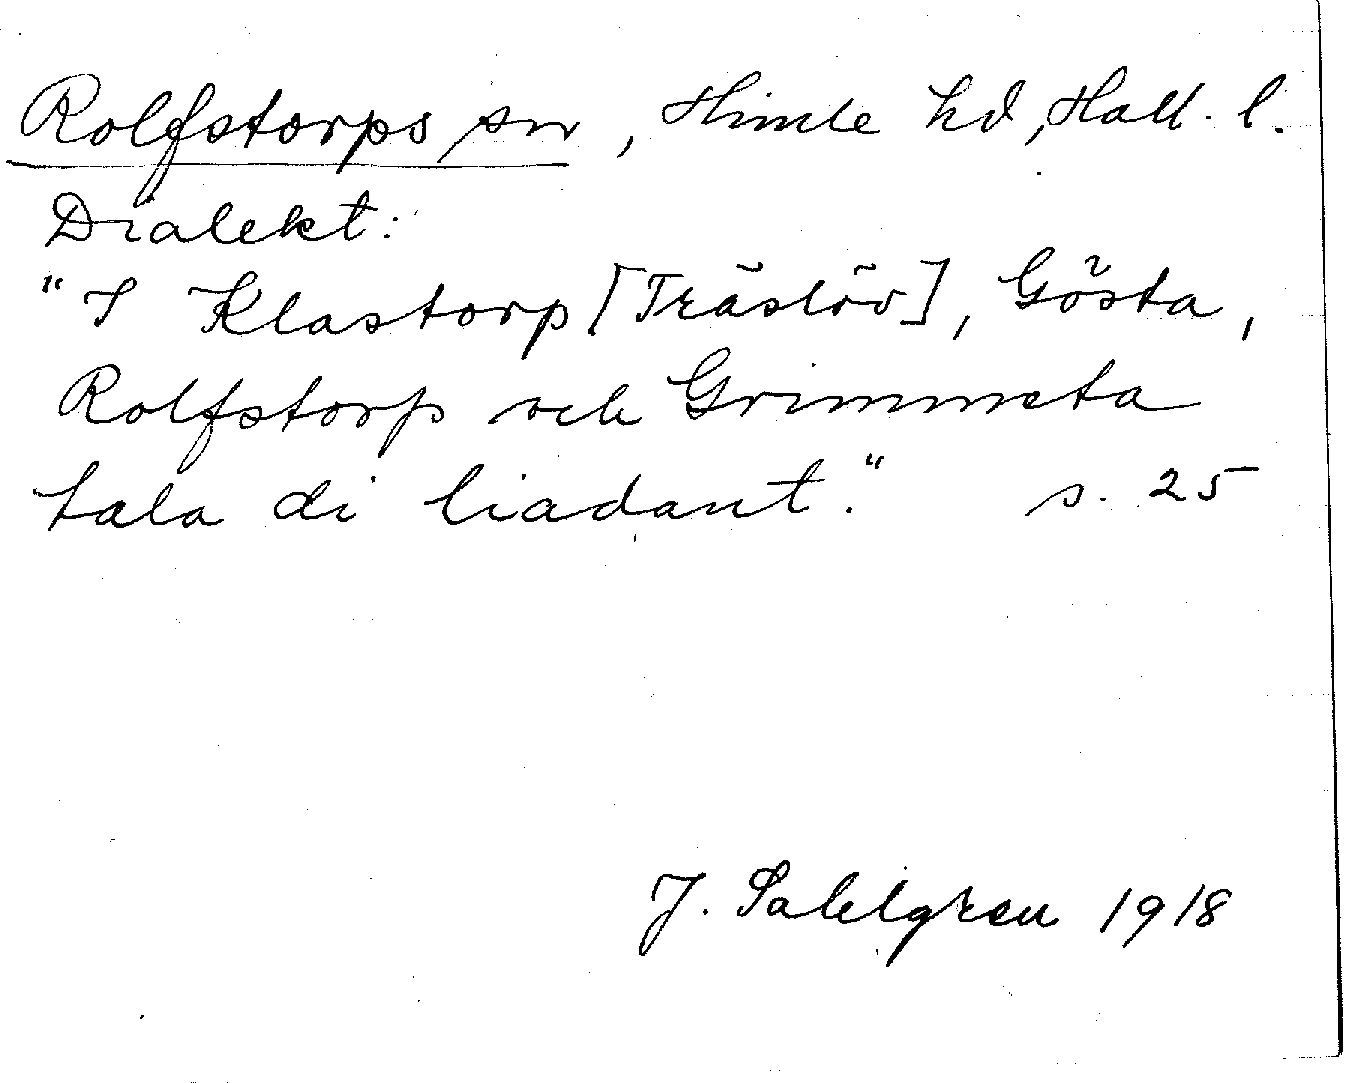 Rolfstorps sn, Himle hd, Hall. l.
Dialekt:
"I Klastorp [Träslöv], Gösta,
Rolfstorp och Grimmeta
tala di liadant." s. 25
J. Sahlgren 1918